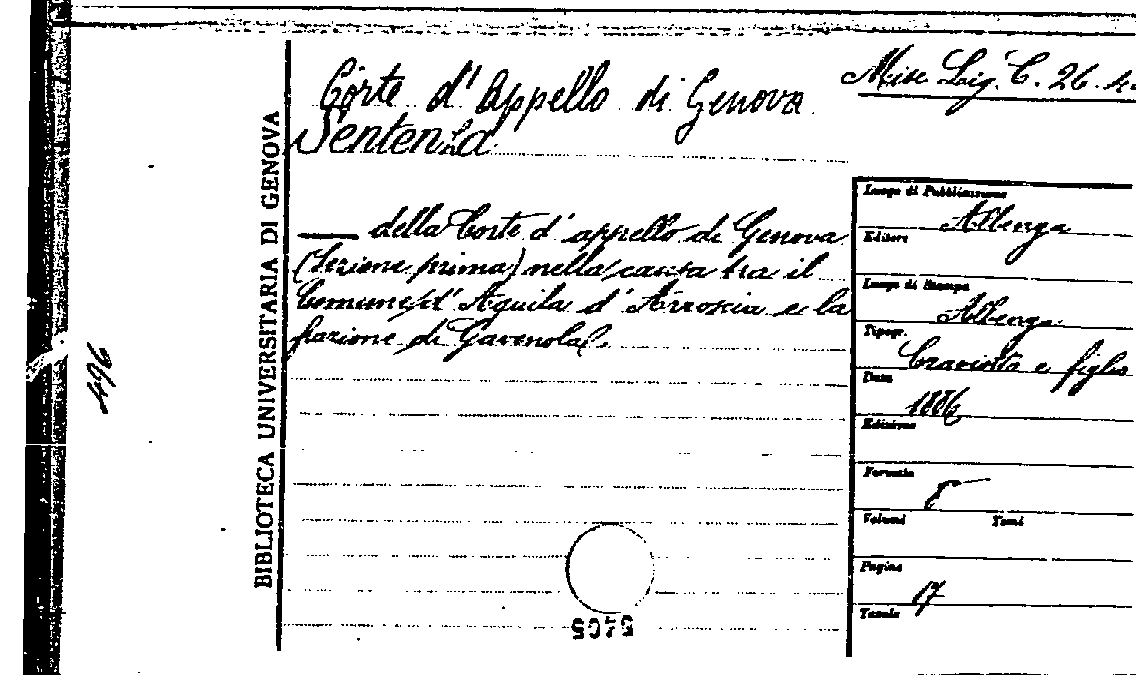 Corte d'Appello di Genova
Sentenza
Misc. Lig. C. 26.
BIBLIOTECA UNIVERSITARIA DI GENOVA
— della Corte d'appello di Genova
(Sezione prima) nella causa tra il
Comune d'Aquila d'Arroscia e la
frazione di Gavenola.
Luogo di Pubblicazione
Albenga
Editore
Luogo di Stampa
Albenga
Tipogr.
Craviotto e figlio
Data
1886
Edizione
Formato
8
Volumi Tomi
Pagine
17
Tavole
496
5405